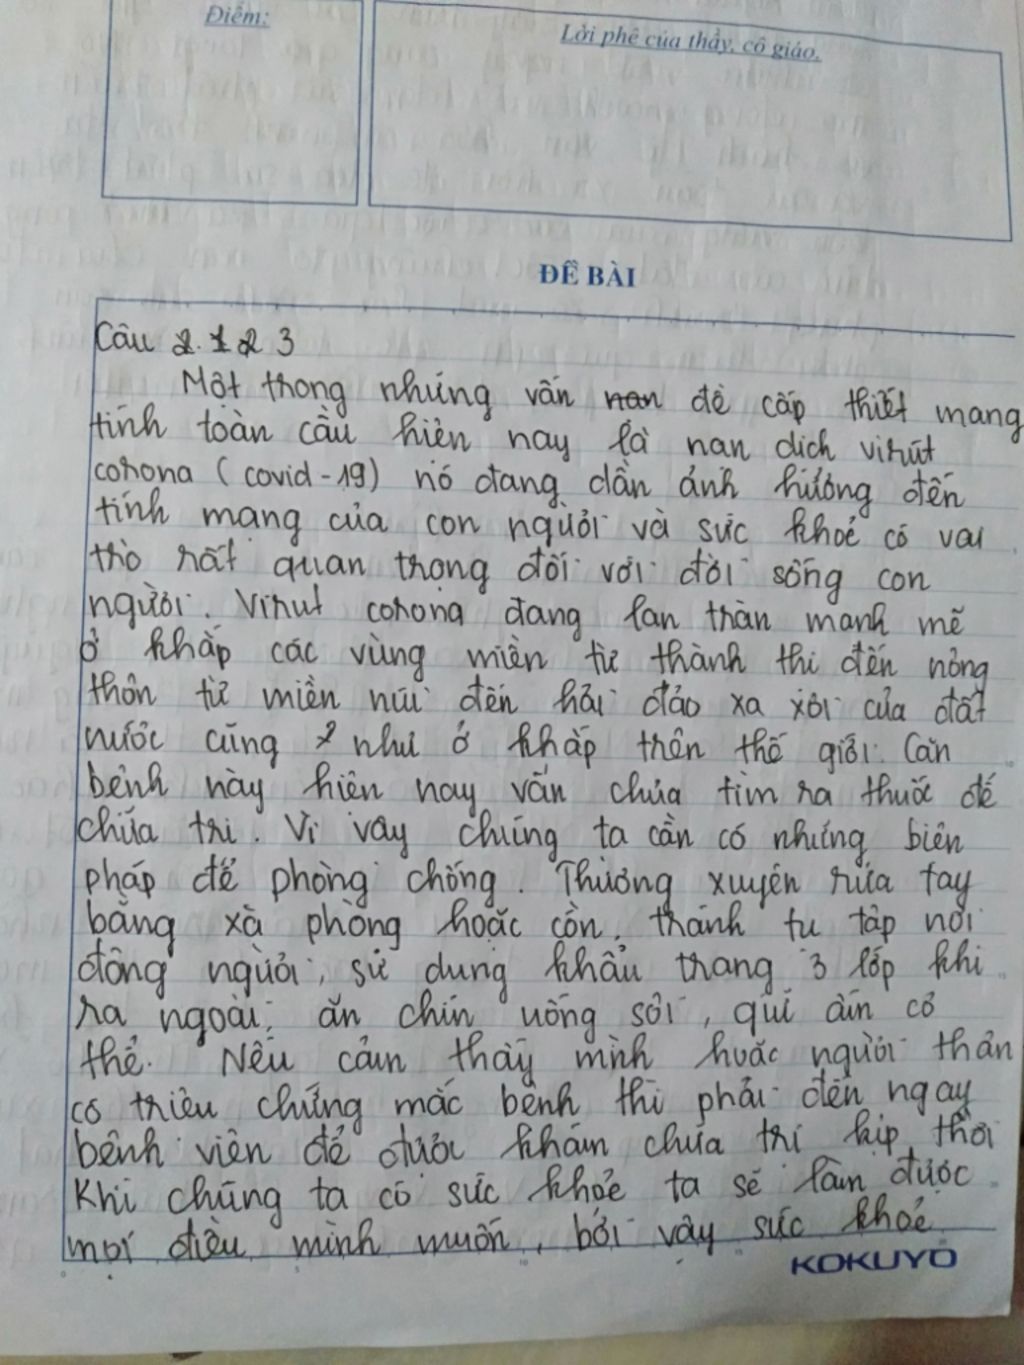 Điểm:
Lời phê của thầy, cô giáo.
ĐỀ BÀI
Câu 3
Một trong những vấn đề cấp thiết mang
tính toàn cầu hiện nay là nạn dịch virút
corona (covid-19) nó đang dần ảnh hưởng đến
tính mạng của con người và sức khoẻ có vai
trò rất quan trọng đối với đời sống con
người. Virut corona đang lan tràn mạnh mẽ
ở khắp các vùng miền từ thành thị đến nông
thôn từ miền núi đến hải đảo xa xôi của đất
nước cũng như ở khắp trên thế giới. Căn
bệnh này hiện nay vẫn chưa tìm ra thuốc để
chữa trị. Vì vậy chúng ta cần có những biện
pháp để phòng chống. Thường xuyên rửa tay
bằng xà phòng hoặc cồn, tránh tụ tập nơi
đông người, sử dụng khẩu trang 3 lớp khi
ra ngoài, ăn chín uống sôi, cơ
thể. Nếu cảm thấy mình hoặc người thân
có triệu chứng mắc bệnh thì phải đến ngay
bệnh viện để được khám chữa trị kịp thời
Khi chúng ta có sức khoẻ ta sẽ làm được
mọi điều mình muốn, bởi vậy sức khoẻ
KOKUYO